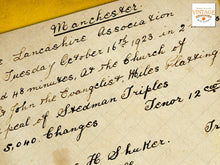 Manchester.
Lancashire Association
Tuesday October 16th 1923 in 2
d 48 minutes, At the Church of
St John the Evangelist, Miles Platting
peal of Stedman Triples
5,040. Changes Tenor 12 cwt
H Shuker.
VINTAGE